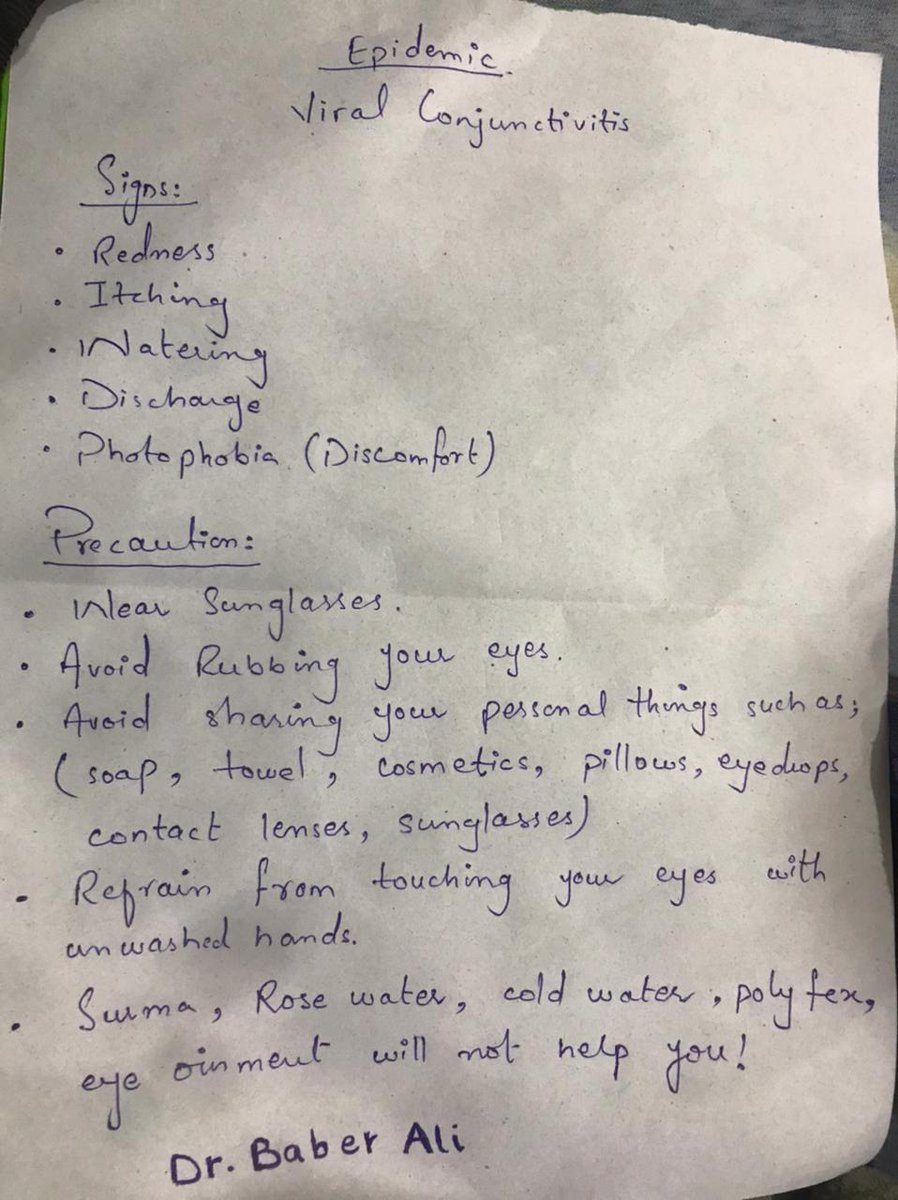 Epidemic.
Viral Conjunctivitis
Signs:
• Redness
• Itching
• Watering
• Discharge
• Photophobia (Discomfort)
Precaution:
• Wear Sunglasses.
• Avoid Rubbing your eyes.
• Avoid sharing your personal things such as;
(soap, towel, cosmetics, pillows, eyedrops,
contact lenses, sunglasses)
• Refrain from touching your eyes with
unwashed hands.
• Surma, Rose water, cold water, polyfex,
eye oinment will not help you!
Dr. Baber Ali